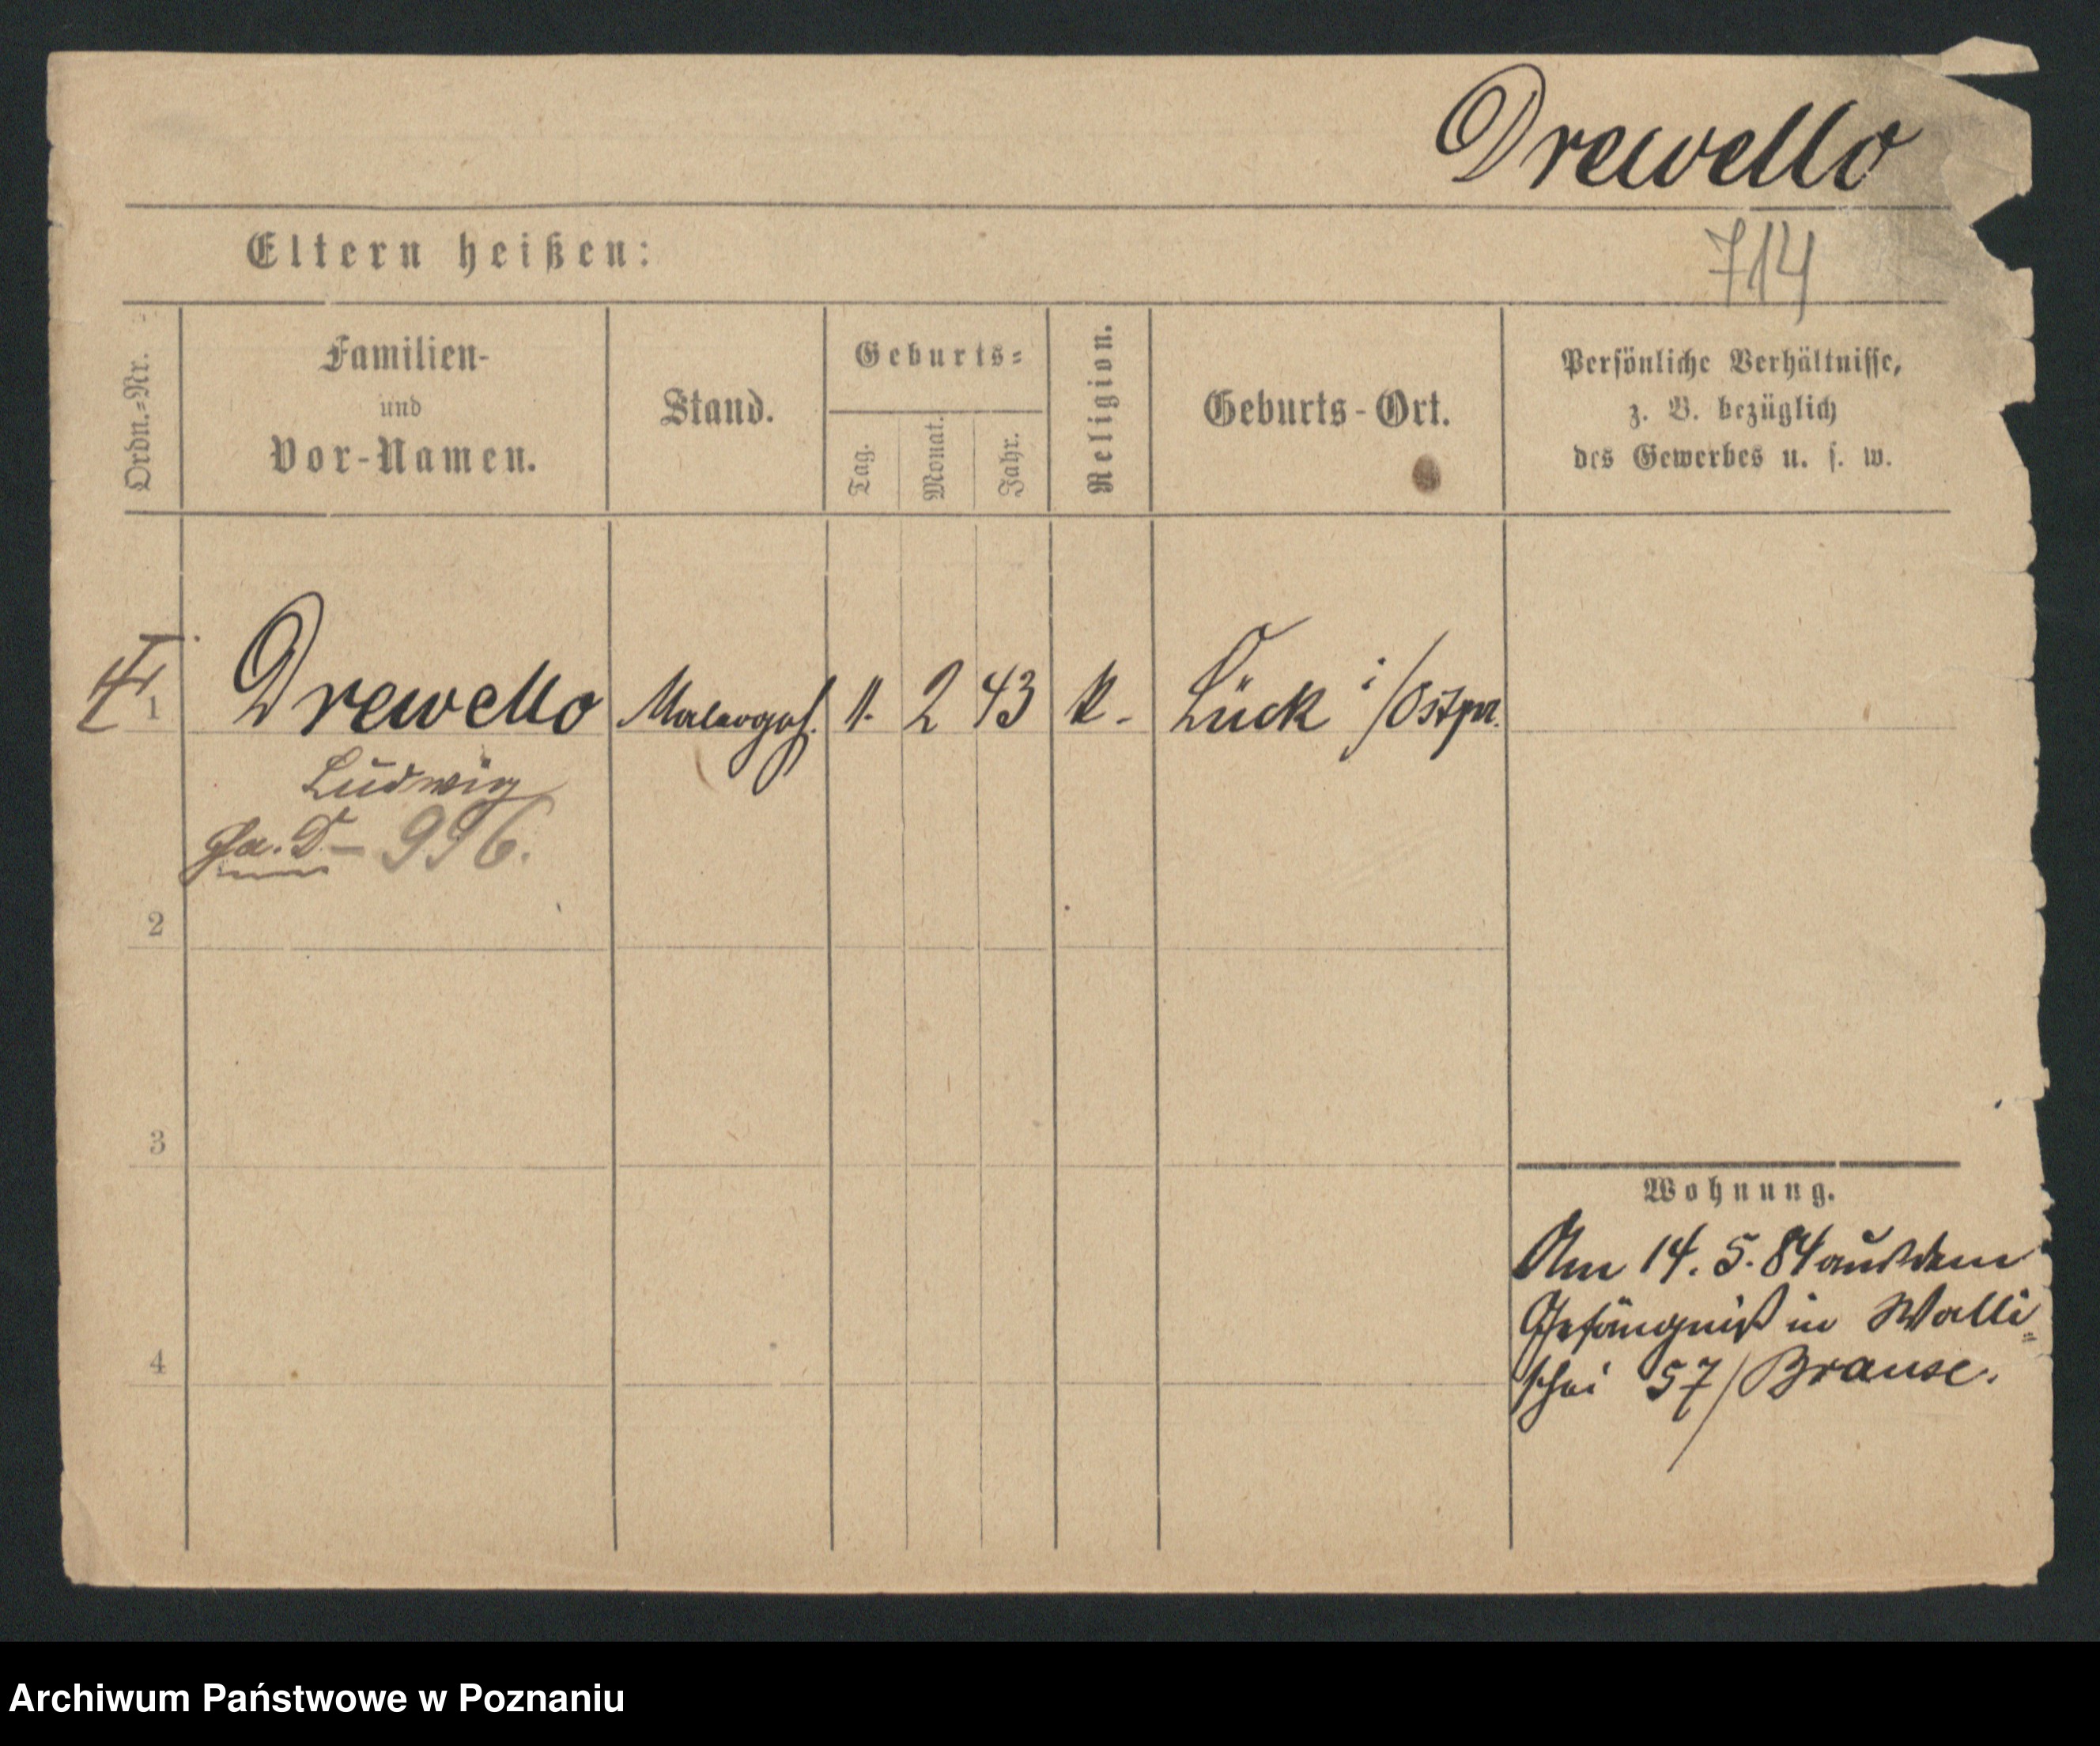 Drewello
714
Eltern heißen:
Ordn.=Nr.
Familien-
und
Vor-Namen.
Stand.
Geburts=
Tag.
Monat.
Jahr.
Religion.
Geburts-Ort.
Persönliche Verhältnisse,
z. B. bezüglich
des Gewerbes u. s. w.
1 Drewello Malergeh. 11. 2 43 k. Lück i/Ostpr.
Ludwig
996.
2
3
4
Wohnung.
Am 14. 5. 84 aus dem
Gefängniß in Walli=
schei 57/Brause.
Archiwum Państwowe w Poznaniu